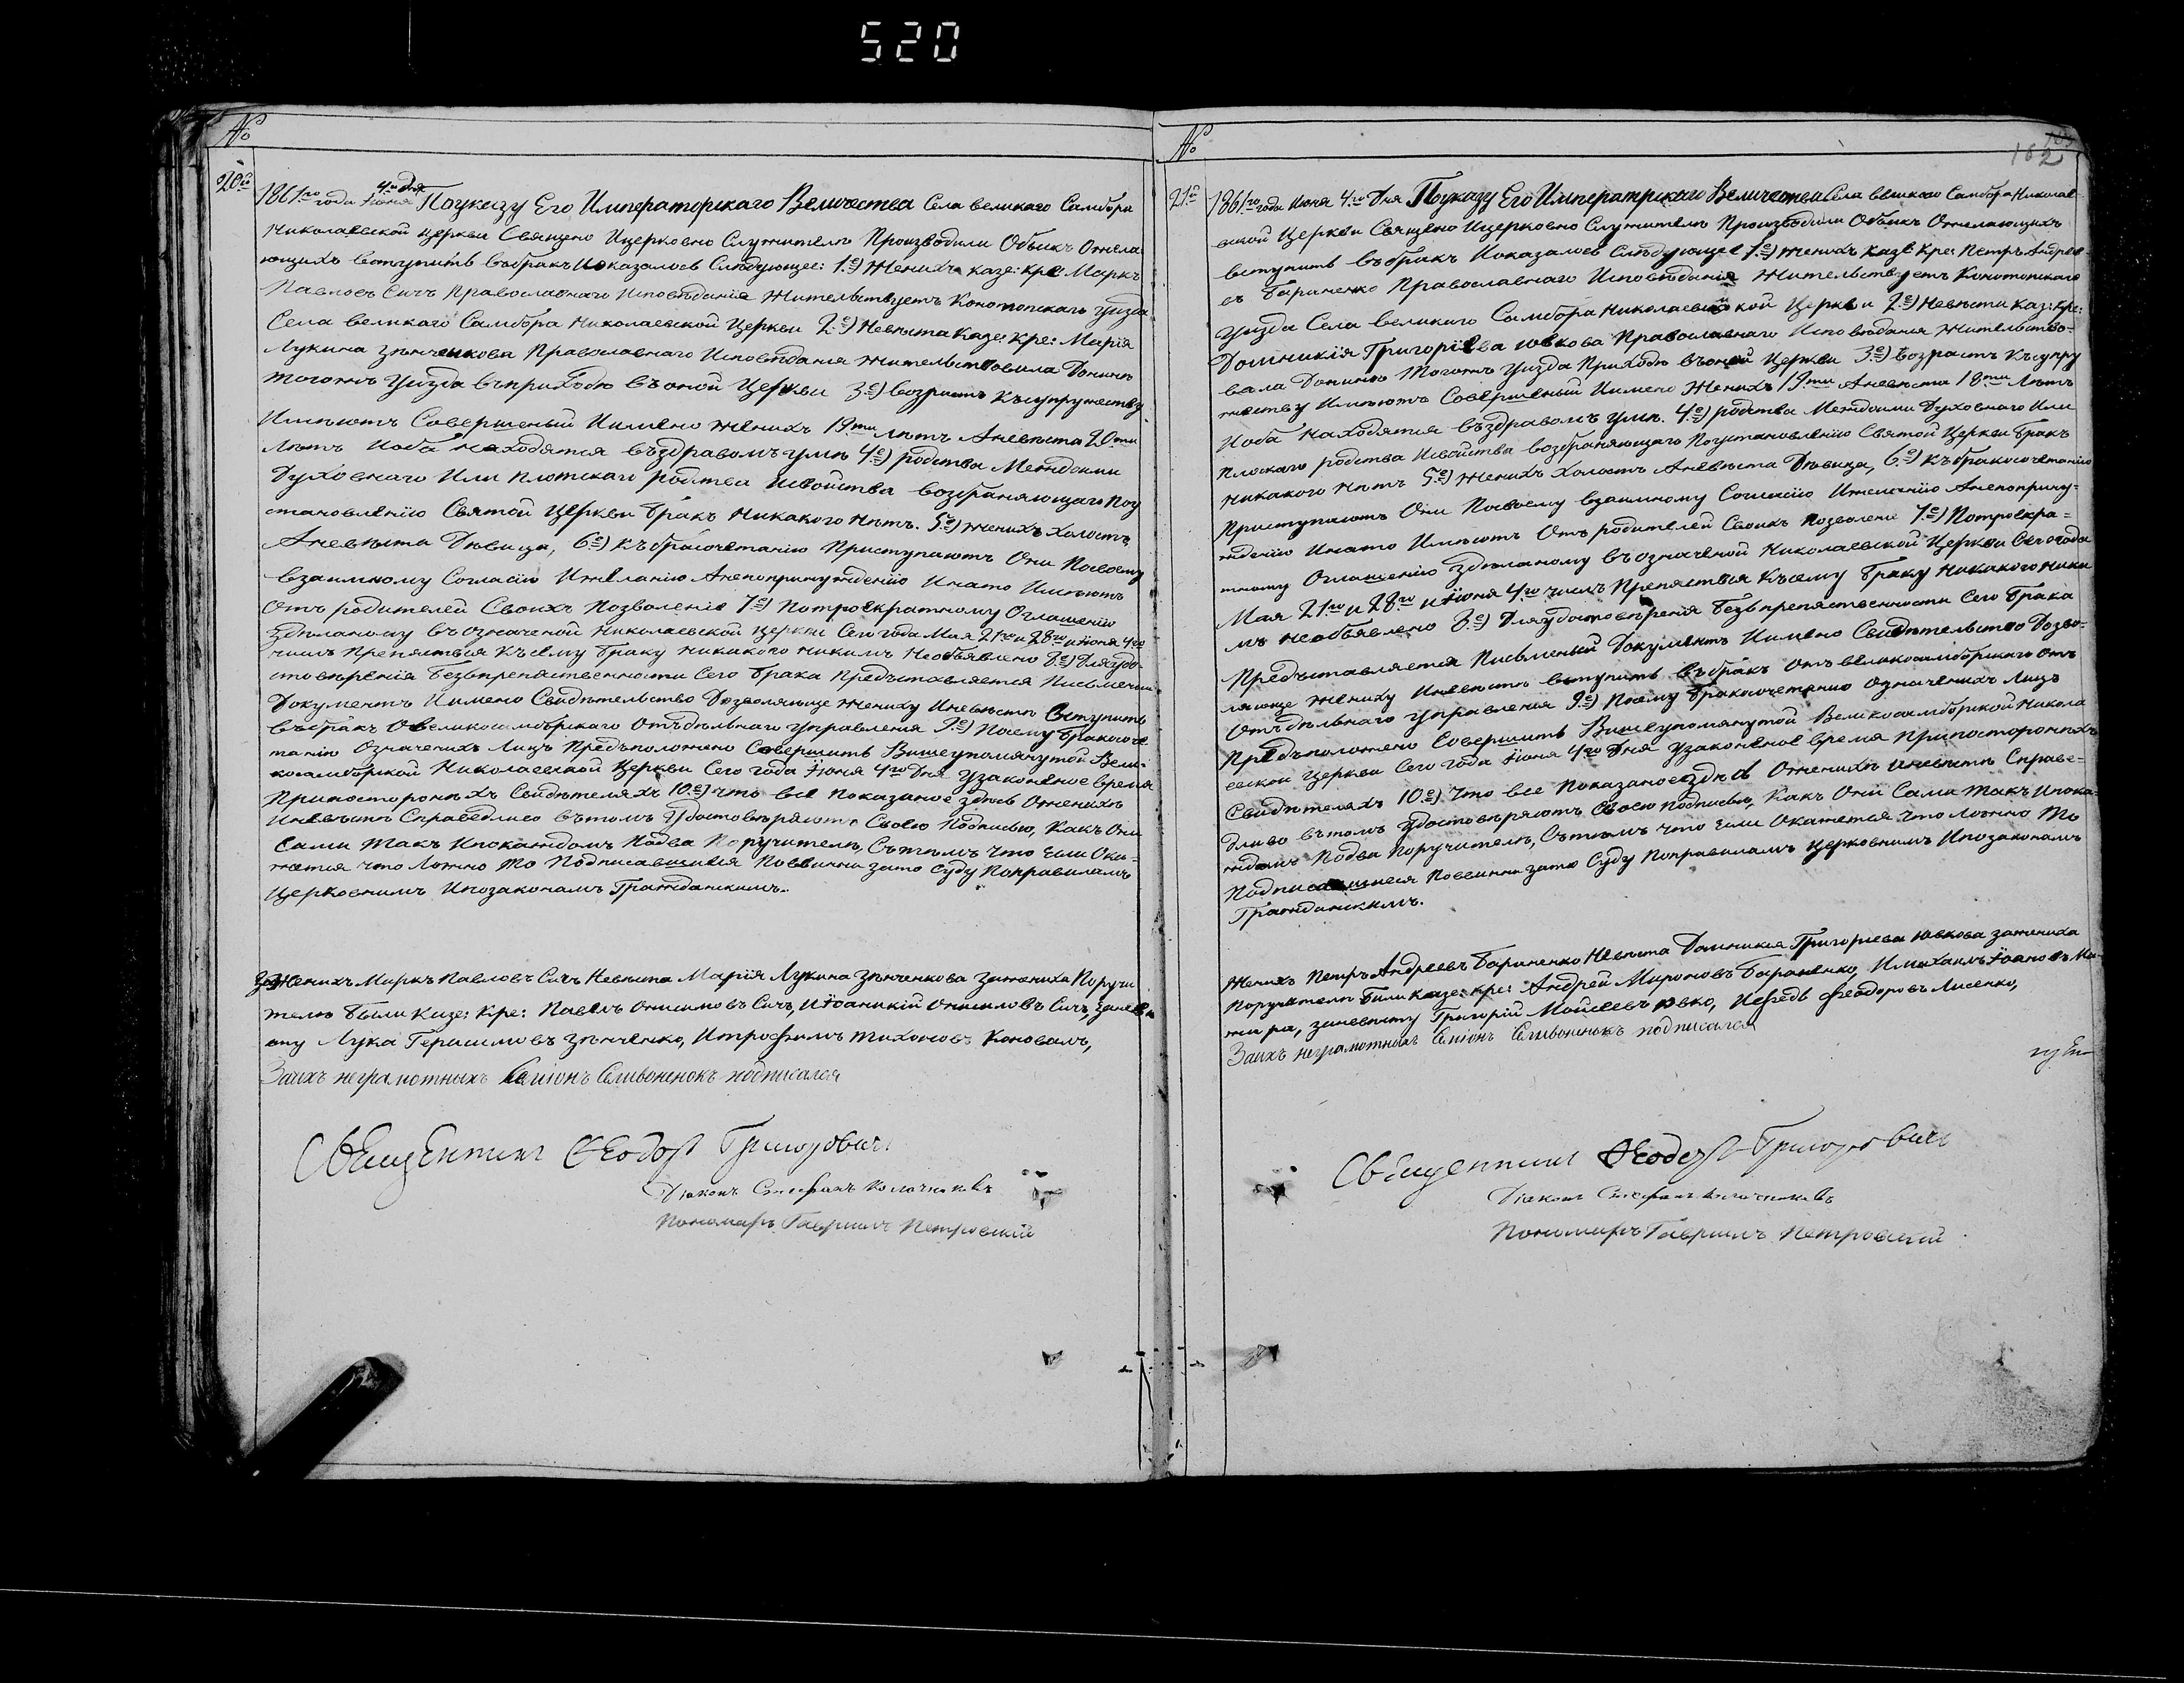 520
№
20е
1861го года Іюня 4го дня Поуказу Его Императорскаго Величества Села великаго Самбора
Николаевской церкви Священо Ицерковно Служители Производили Обыкъ Ожела
ющихъ вступить вьбракъ Ипоказалось Слѣдующее: 1е) Женихъ казе: кре Маркъ
Павловъ Сичъ Православнаго Исповѣданія Жительствуетъ Конотопскаго уизда
Села великаго Самбора Николаевской Церкви 2е) Невѣста Казе: кре: Марія
Лукина Зѣнченкова Православнаго Исповѣданія Жительствовала Донинѣ
Тогожъ уизда въприходѣ въ оной Церкви 3е) возрастъ Късупружеству
Имѣютъ Совершеный Иимено Женихъ 19ти лѣтъ Аневѣста 20ти
лѣтъ Иоба находятся въздравомъ умѣ 4е) родства Междоими
Духовнаго Или плотскаго родства Исвойства возбраняющаго Поу
становленію Святой Церкви бракъ Никакого нѣтъ. 5е) Женихъ Холостъ
Аневѣста Дѣвица, 6е) Къбракосочетанію Приступаютъ Они Посвоему
взаимному Согласію Ижеланію Анепопринужденію Инато Имѣютъ
Отъ родителей Своихъ Позволеніе 7е) Потроекратному Оглашенію
Здѣланому въ означеной Николаевской Церкви Сего года Мая 21го и 28го и Іюня 4го
числъ Препятствія Късему браку никакого никимъ Необъявлено 8е) Дляудо-
стовѣренія Безъпрепятственности Сего брака Предъставляется Письменый
Документъ Иимено Свидѣтельство Дозволяюще Жениху Иневѣстѣ Вступить
въбракъ Отъ великосамборскаго Отъдѣльнаго Управленія 9е) Посему бракосоче
танію Означенихъ Лицъ Предъположено Совершить Вишеупомянутой Вели-
косамборской Николаевской Церкви Сего года Іюня 4го Дня узаконеное время
Припосторонихъ Свидѣтеляхъ 10е) Что все показаное здѣсь Оженихѣ
Иневѣстѣ Справедливо вътомъ Удостовѣряютъ Своею Подписью, Какъ Они
Сами такъ Ипокаждомъ Подва Поручителя, Сътѣмъ Что Если Ока-
жется что Ложно То Подписавшиеся Повинни зато Суду Поправиламъ
Церковнимъ Ипозаконамъ Гражданскимъ.
Женихъ Маркъ Павловъ Сичъ Невѣста Марія Лукина Зѣнченкова Зажениха Поручи
телѣ Были Казе: Кре: Павелъ Онисимовъ Сичъ, И Іоаникій Онисимовъ Сичъ, Заневѣ
сту Лука Герасимовъ Зѣнченко, Итрофимъ Тихоновъ Коновалъ,
Заихъ неграмотныхъ Селивоненокъ подписался
Священникъ Феодосій Григоровичъ
Діаконъ Стефанъ
Пономарь Гавриилъ Петровскій
№
162
21е
1861го года Июня 4го Дня Поуказу Его Императрскаго Величества Села великаго Самбора Николае-
вской Церкви Священо Ицерковно Служители Производили Обыкъ Ожелающихъ
вступить въбракъ Ипоказалось Слѣдующее 1е) Женихъ казе кре: Петръ Андрее-
въ Бараненко Православнаго Исповѣданія Жительствуетъ Конотопскаго
Уизда Села великаго Самбора Николаевской Церкви 2е) Невѣста каз: кре:
Домникія Григоріева Ювкова Православнаго Исповѣданія Жительство-
вала Донинѣ Тогожъ уизда Приходѣ въоной Церкви 3е) возрастъ Късупру
жеству Имѣютъ Совершеный Иимено Женихъ 19ти Аневѣста 18ти Лѣтъ
Иоба находятся въздравомъ умѣ. 4е) родства Междоими Духовнаго Или
Плоскаго родства Исвойства возбраняющаго Поустановленію Святой Церкви бракъ
Никакого Нѣтъ 5е) Женихъ Холостъ Аневѣста Дѣвица, 6е) Къбракосочетанію
Приступаютъ Они Посвоему взаимному Согласію Ижеланію Анепопрену-
жденію Инато Имѣютъ Отъ родителей Своихъ Позволение 7е) Потроекра-
тному Оглашенію здѣланому въозначеной Николаевской Церкви Сего года
Мая 21го и 28го и Іюня 4го числъ Препятствія Късему браку Никакого Ники
мъ Необъявлено 8е) Дляудостовѣренія Безъпрепятственности Сего брака
Предъставляется Письменый Документъ Иимено Свидѣтельство Дозво-
ляюще Жениху Иневѣстѣ вступить въбракъ Отъ великосамборскаго Отъ
Отъдѣльнаго Управленія 9е) Посему бракосочетанію Означенихъ Лицъ
Предъположено Совершить Вишеупомянутой Великосамборской Никола
евской Церкви Сего года Іюня 4го Дня Узаконеное время Припосторонихъ
Свидѣтеляхъ 10е) Что все Показаное здѣсь Оженихѣ Иневѣстѣ Справе-
дливо вътомъ удостовѣряютъ Своею Подписью, Какъ Они Сами такъ Ипока-
ждомъ Подва Поручителя, Сътѣмъ что Если Окажется что Ложно То
Подписавшиеся Повинни зато Суду Поправиламъ Церковнимъ Ипозаконамъ
Гражданскимъ.
Женихъ Петръ Андреевъ Бараненко Невѣста Домникія Григориева Ювкова зажениха
Поручителѣ Были казе: кре: Андрей Мироновъ Бараненко, Имихаилъ Іоановъ
заневѣсту Григорій Мойсеевъ Ювко, Феодоровъ Лисенко,
Заихъ неграмотныхъ Селивоненокъ подписался
Священникъ Феодосій Григоровичъ
Діаконъ Стефанъ
Пономарь Гавриилъ Петровскій